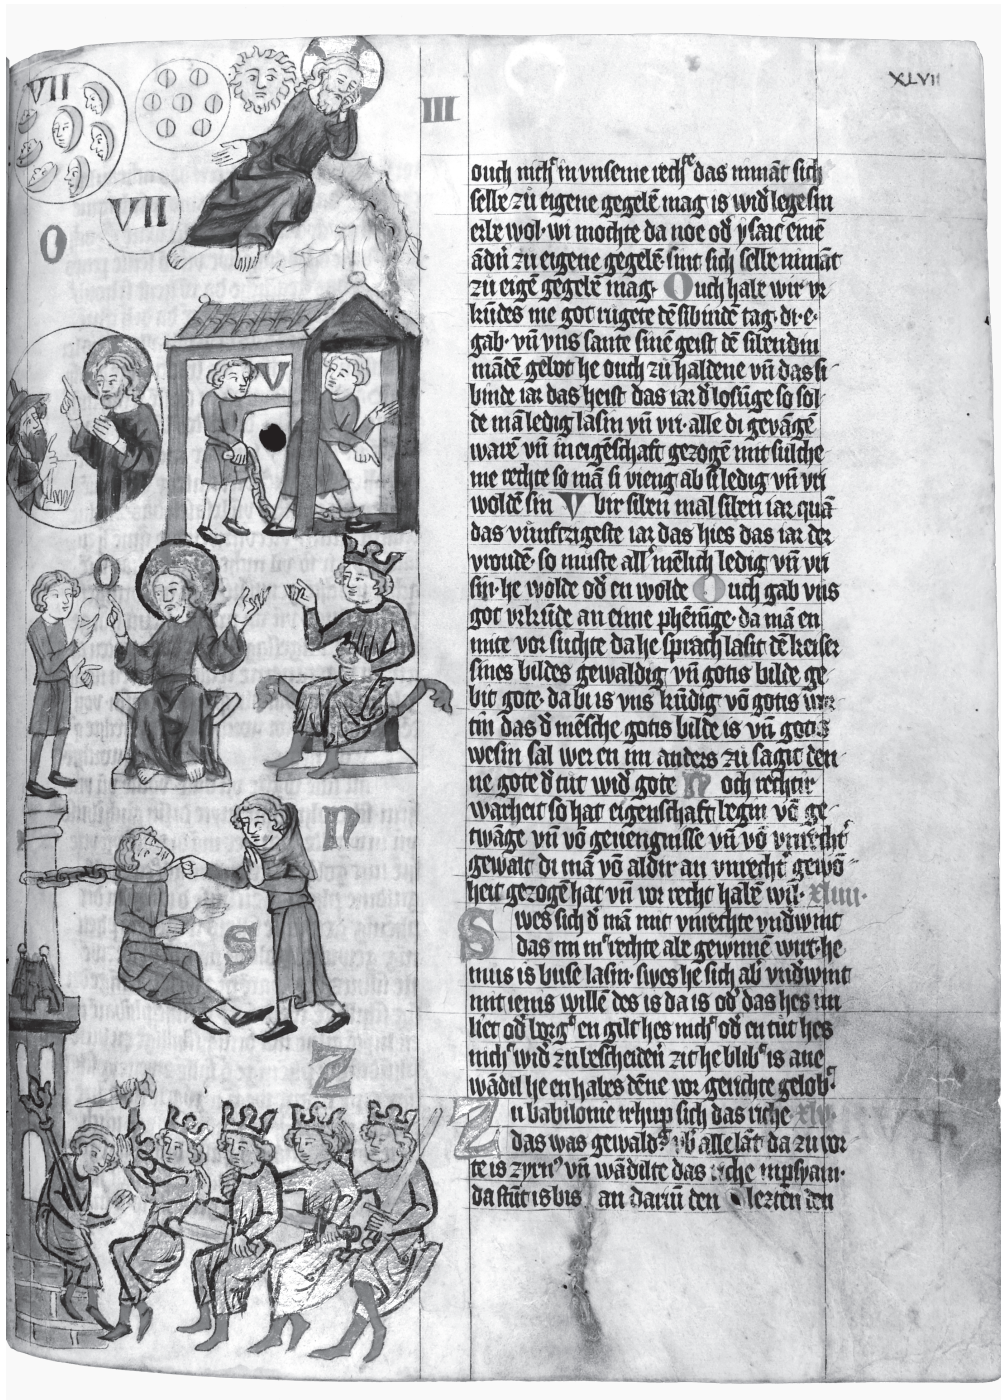 XLVII
III
VII
VII
O
V
O
N
S
Z
ouch nicht in vnseme rechte das nimāt sich
selbe zu eigene gegebē mag is wid̄ lege sin
erbe wol· wi mochte da noe od̓ ysaac einē
ādn̄ zu eigene gegebē sint sich selbe nimāt
zu eigē gegebē mag· Ouch habe wir vr
kūdes me got rugete dē sibindē tag· di· e·
gab· vn̄ vns sante sinē geist dē sibendin
mādē gebot he ouch zu haldene vn̄ das si
binde iar das heist das iar d̓ losūge so sol
de mā ledig lasin vn̄ vri· alle di gevāgē
warē vn̄ in eigēschaft gezogē mit sulche
me rechte so mā si vieng ab si ledig vn̄ vri
woldē sin Vbir siben mal siben iar quā
das vumftzigeste iar das hies das iar der
vroudē· so muste allr̓ mēlich ledig vn̄ vri
sin· he wolde od̓ en wolde Ouch gab vns
got vrkūde an eime phēnige· da mā en
mite vor suchte da he sprach lasit dē keiser
sines bildes gewaldig vn̄ gotis bilde ge
bit gote· da bi is vns kūdig vō gotis wor
tin das d̓ mēsche gotis bilde is vn̄ gotis
wesin sal wer en im anders zu sagit den
ne gote d̓ tut wid̓ gote Noch rechtir
warheit so hat eigenschaft begin vō ge
twāge vn̄ vō gevengnisse vn̄ vō vnrechtr̓
gewalt di mā vō aldir an vnrechte gewō
heit gezogē hat vn̄ vor recht habē wil· xliiii·
Swes sich d̓ mā mit vnrechte vndirwint
das im mit rechte abe gewinnē wirt· he
mus is buse lasin· swes he sich ab̓ vndirwint
mit ienis willē des is da is od̓ das hes im
liet od̓ borgt en gilt hes nicht od̓ en tut hes
nicht wid̓ zu bescheidēr zit he blibt is ane
wādil he en habes dēne vor gerichte gelobt·
Zu babilonie irhup sich das riche xlv·
das was gewaldig ubir alle lāt da zu vor
te is zyrus vn̄ wādilte das riche in psyam·
da stūt is bis an dariū den lezten den